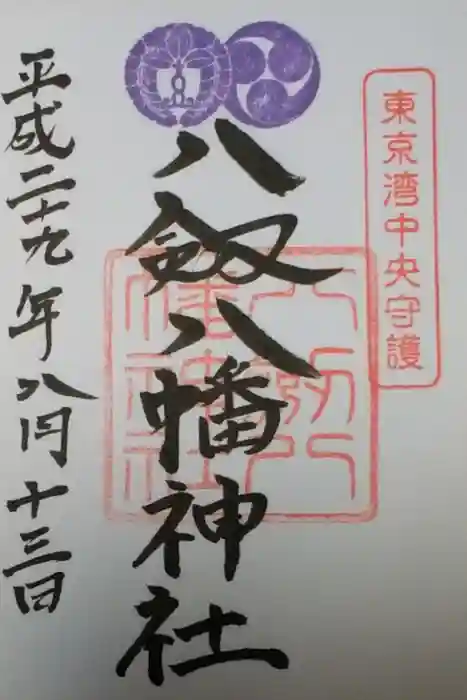 東京湾中央守護
八剱八幡神社
平成二十九年八月十三日